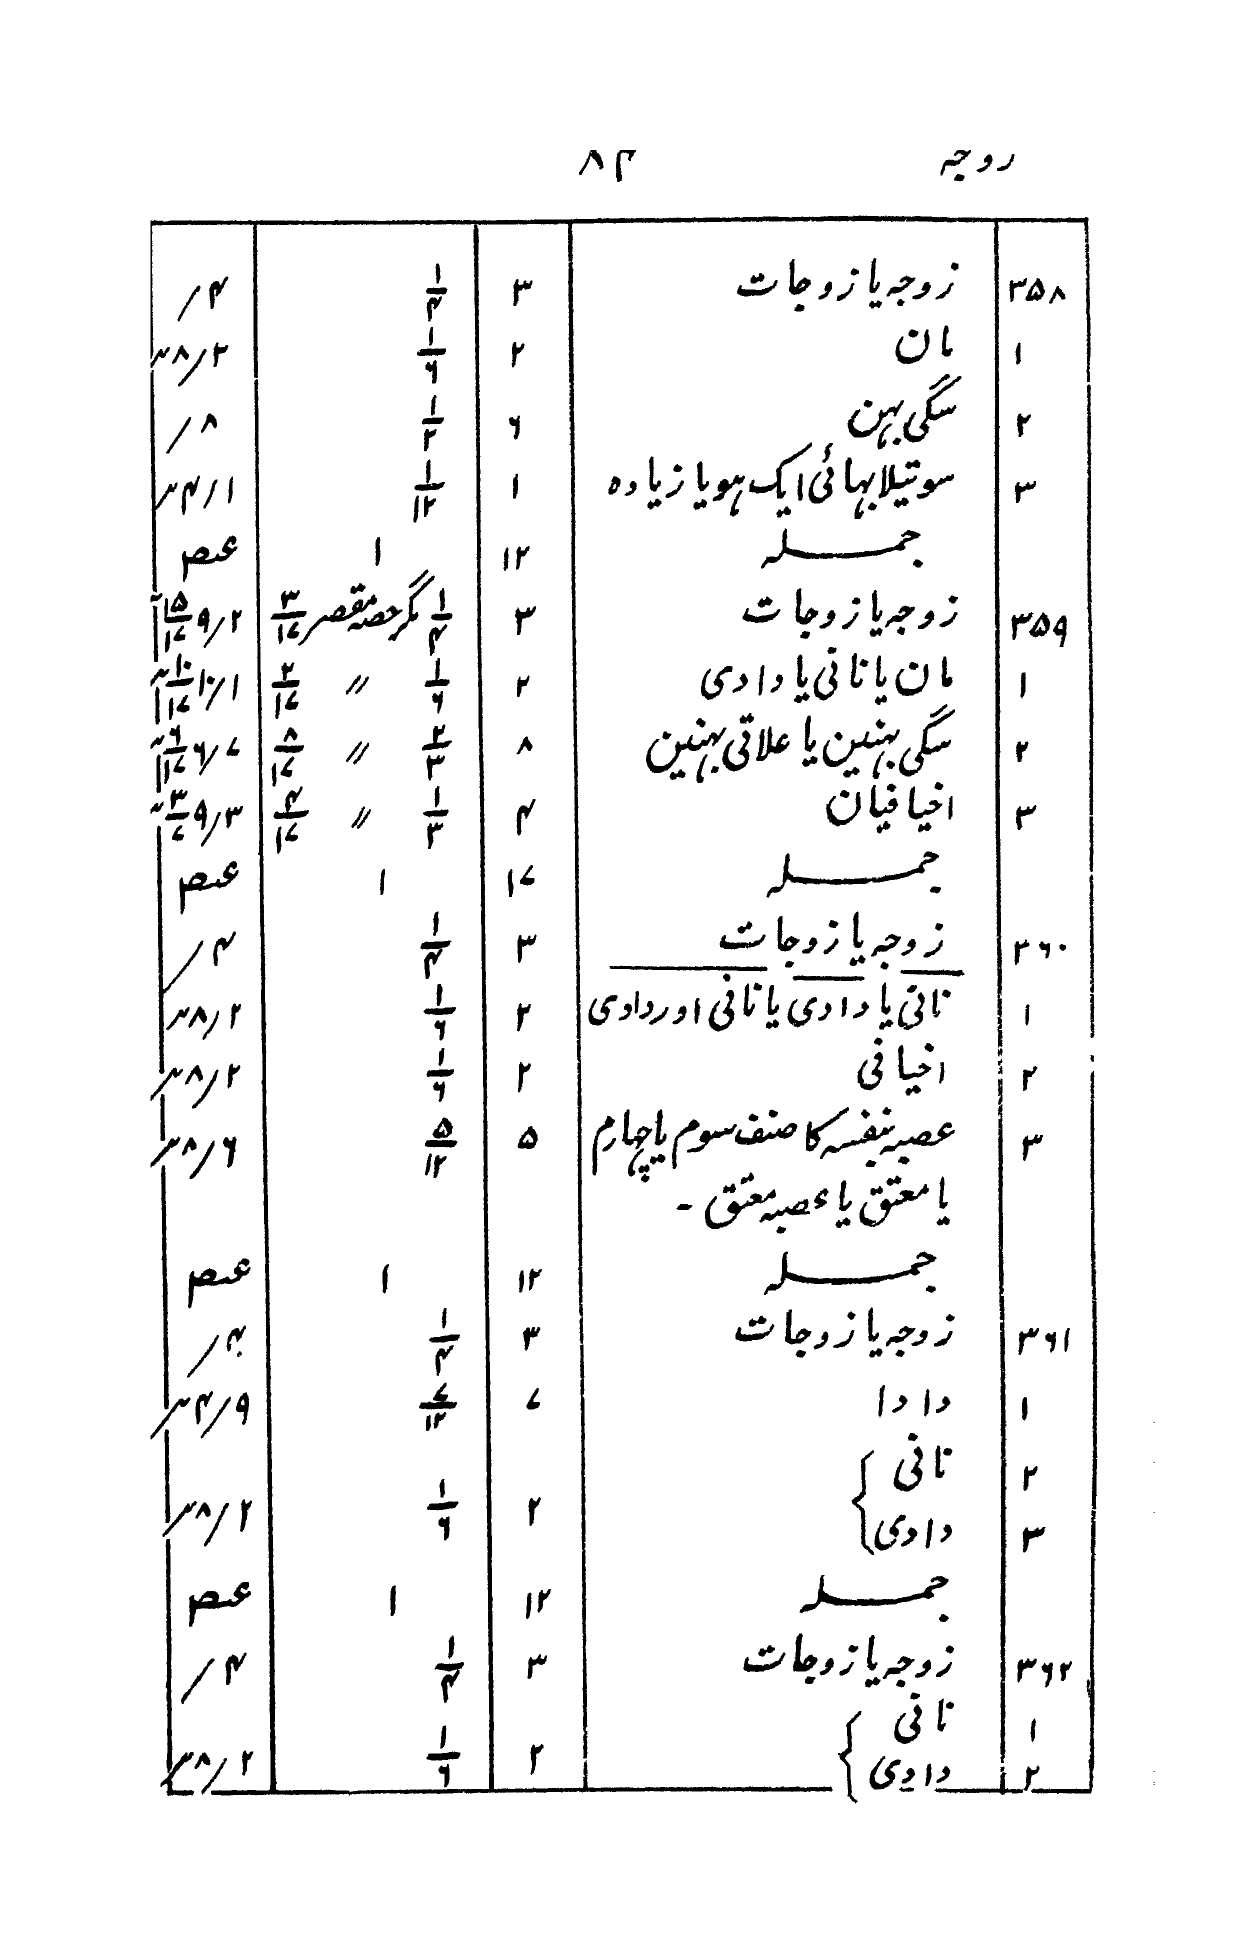 روجہ ۸۴
۳۵۸ زوجہ یا زوجات ۳ ۱/۴ ۴/
۱ مان ۲ ۱/۶ ۲/۸
۲ سگی بہن ۶ ۱/۲ ۸/
۳ سوتیلا بہائی ایک ہو یا زیادہ ۱ ۱/۱۲ ۱/۴
جملہ ۱۲ ۱ عصہ
۳۵۹ زوجہ یا زوجات ۳ ۱/۴ مگر حصہ مقصر ۳/۱۷ ۲/۹ ۱۵/۱۷
۱ مان یا نانی یا دادی ۲ ۱/۶ 〃 ۲/۱۷ ۱/۱۰ ۱۰/۱۷
۲ سگی بہنین یا علاتی بہنین ۸ ۲/۳ 〃 ۸/۱۷ ۷/۶ ۶/۱۷
۳ اخیافیان ۴ ۱/۳ 〃 ۴/۱۷ ۳/۹ ۳/۷
جملہ ۱۷ ۱ عصہ
۳۶۰ زوجہ یا زوجات ۳ ۱/۴ ۴/
۱ نانی یا دادی یا نانی اور دادی ۲ ۱/۶ ۲/۸
۲ اخیافی ۲ ۱/۶ ۲/۸
۳ عصبہ بنفسہ کا صنف سوم یا چہارم ۵ ۵/۱۲ ۶/۸
یا معتق یا عصبہ معتق ۔
جملہ ۱۲ ۱ عصہ
۳۶۱ زوجہ یا زوجات ۳ ۱/۴ ۴/
۱ دادا ۷ ۷/۱۲ ۹/۴
۲ نانی
۳ دادی ۲ ۱/۶ ۲/۸
جملہ ۱۲ ۱ عصہ
۳۶۲ زوجہ یا زوجات ۳ ۱/۴ ۴/
۱ نانی
۲ دادی ۲ ۱/۶ ۲/۸